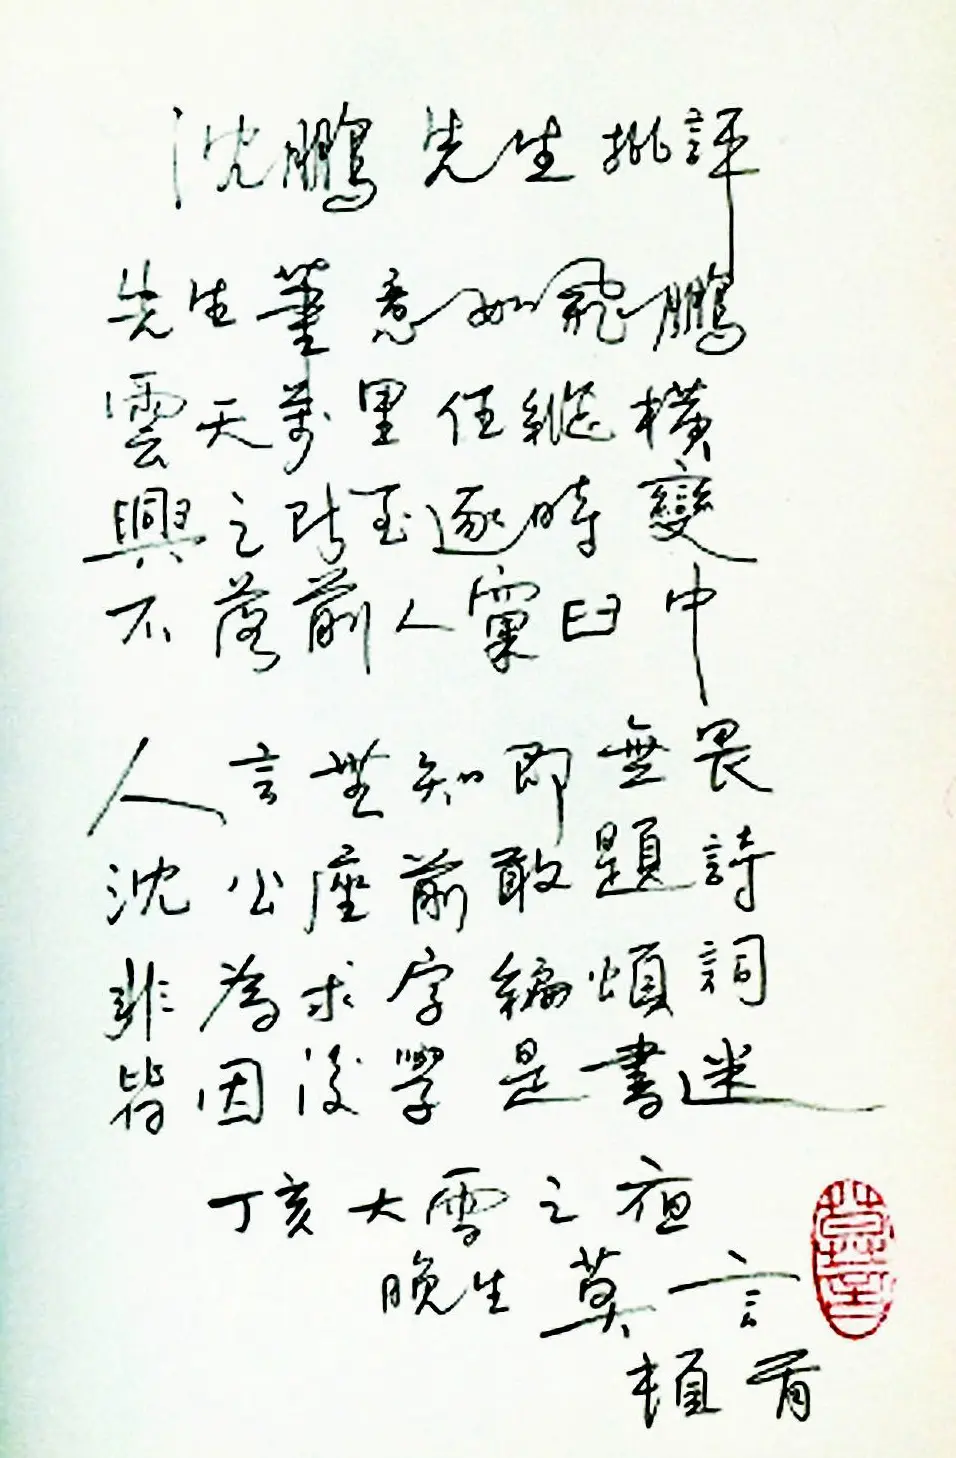 沈鵬先生批評
先生筆意如飛鵬
雲天萬里任縱橫
興之所至逐時變
不落前人窠臼中
人言無知即無畏
沈公座前敢題詩
非為求字編頌詞
皆因後學是書迷
丁亥大雪之夜
晚生莫言
頓首